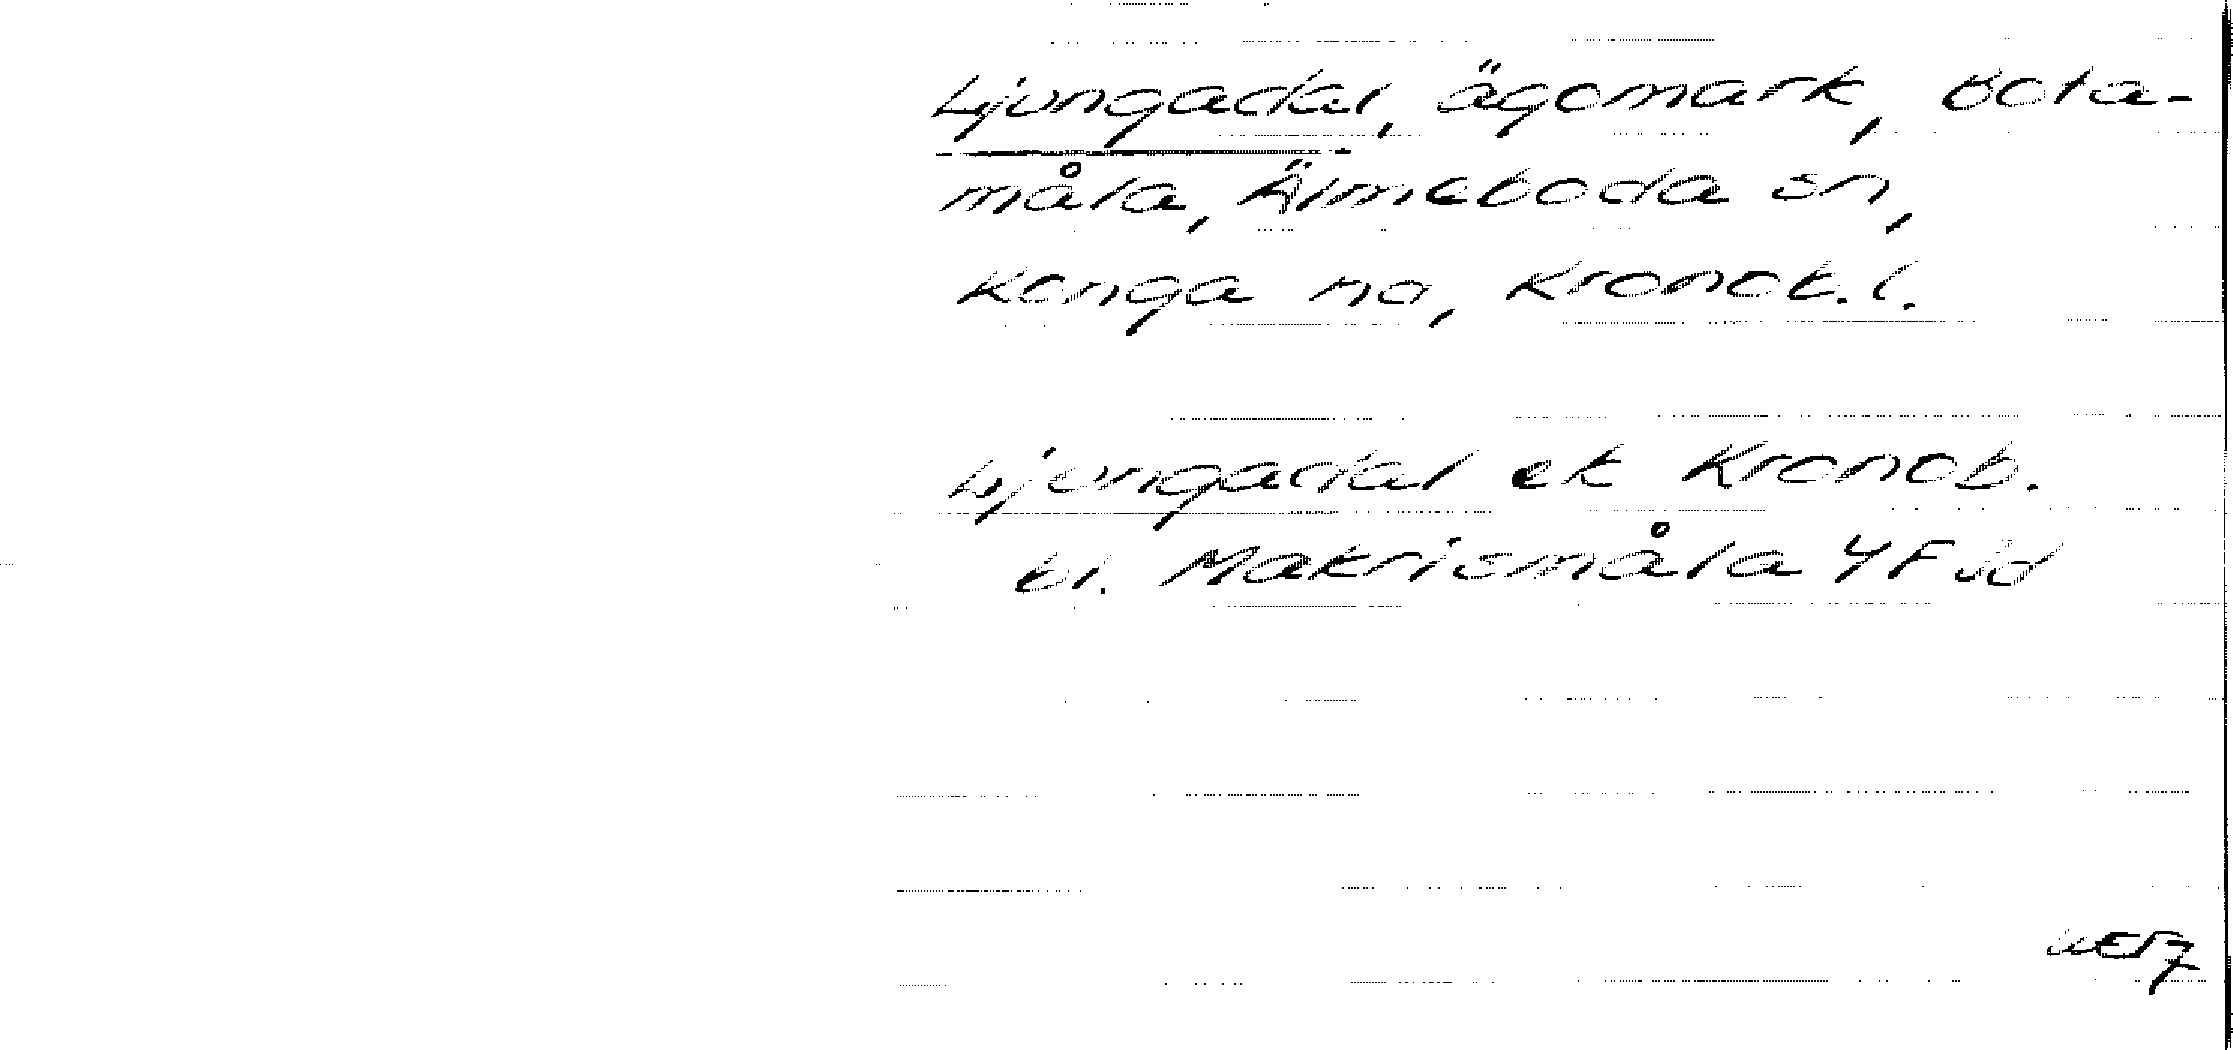 Ljungackal, ägomark, Bota-
måla, Älmeboda sn,
Konga hd, Kronob. l.
Ljungackal ek Kronob.
bl. Makrismåla 4F